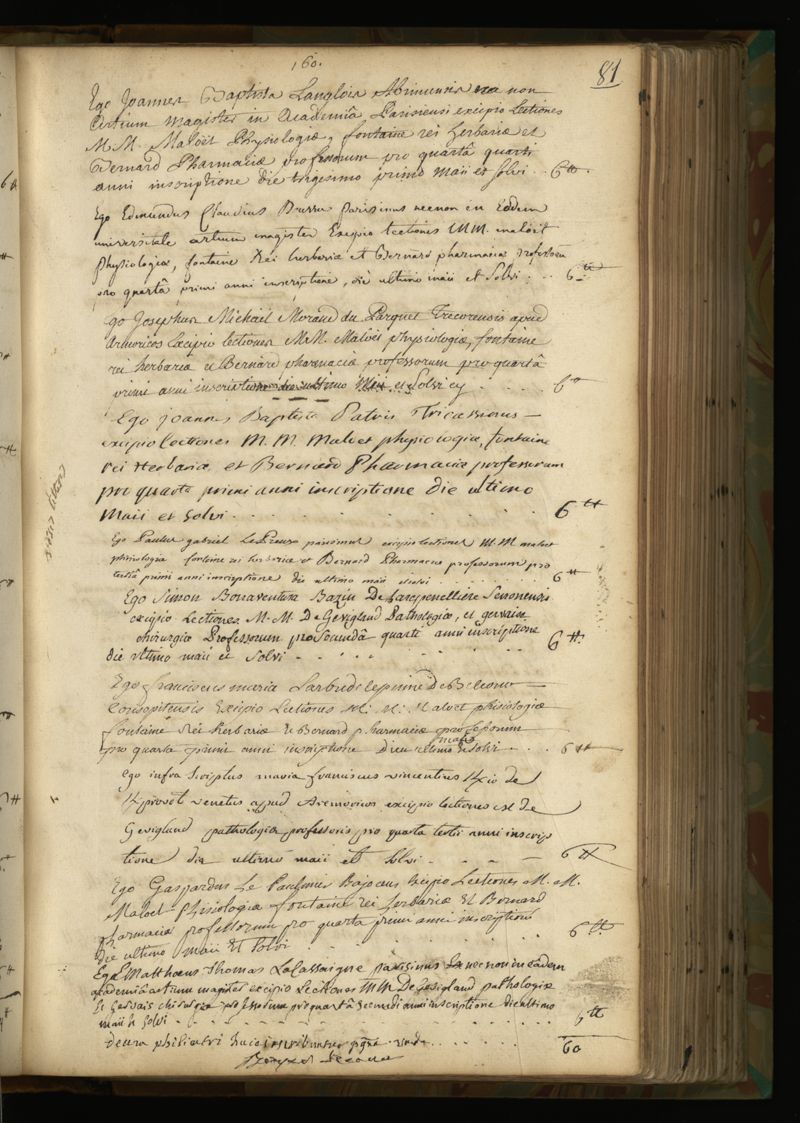 160.
81
Ego Joannes Baptista Langlois non
Artium magister in Academiâ Parisiensi excipio Lectiones
M.M. Maloët Physiologiæ, fontaine rei herbariæ et
Bernard Pharmaciæ professorum pro quartâ quarti
anni inscriptione die trigesimo primo maii et solvi .. 6tt.
Ego Edmundus Claudius Parisinus necnon in Eadem
universitate artium magister Excipio lectiones MM. maloët
physiologiæ, fontaine Rei herbariæ et Bernard pharmaciæ professorum
pro quartâ primi anni inscriptione, die ultimo maii et Solvi . . . 6tt
Ego Josephus Michaël Morand du Parquet Trecorensis apud
Armoricos Excipio lectiones M.M. Maloët physiologiæ, fontaine
rei herbariæ et Bernard pharmaciæ professorum pro quartâ
primi anni inscriptione die ultimo Maii et Solvi . . . . 6tt
Ego joannes Baptista Patris Tricassinus
excipio lectiones M. M. Maloet physiologiæ, fontaine
rei Herbariæ et Bernard Pharmaciæ professorum
pro quarta primi anni inscriptione die ultimo
Maii et solvi . . . . . . . . 6tt
Ego Paulus gabriel parisinus excipio lectiones M.M maloet
phisiologiæ fontaine rei herbariæ et Bernard Pharmaciæ professorum pro
tertiâ primi anni inscriptione die ultimo maii et solvi . . . . . . 6tt
Ego Simon Bonaventura Bazin De Senonensis
excipio Lectiones M.M. De Gevigland Pathologiæ, et gervais
chirurgiæ Professorum pro Secundâ quarti anni inscriptione
die ultimo maii et Solvi . . . . . . . 6tt.
Ego franciscus maria
Corisopitensis Excipio Lectiones M. M. Maloet phisiologiæ
fontaine Rei herbariæ et Bernard pharmaciæ professorum
pro quarta primi anni inscriptione die ultimo maii et solvi . . . 6tt
Ego infra Scriptus maria franciscus vincentius de
venetus apud Aremoricos excipio lectiones M de
Gevigland pathologiæ professoris pro quarta tertii anni inscrip
tione die ultimo maii et Solvi . . . . 6tt
Ego Gaspardus Le Paulmier Bajocæus Excipio Lectiones M. M.
Maloet Phisiologiæ fontaine rei herbariæ et Bernard
pharmaciæ professorum pro quarta primi anni inscriptione
die ultimo Maii Et Solvi . . . . . . 6tt.
Ego Matthæus Thomas Lalassaigne parisinus necnon in eadem
academiâ artium magister excipio Lectiones MM De Gevigland pathologiæ
Et Gervais chirurgiæ professorum pro quartâ secundi anni inscriptione die ultimo
maii et Solvi . . . . . . . 6tt
decem philiatri hacce inscribuntur pagina . . . . . 60